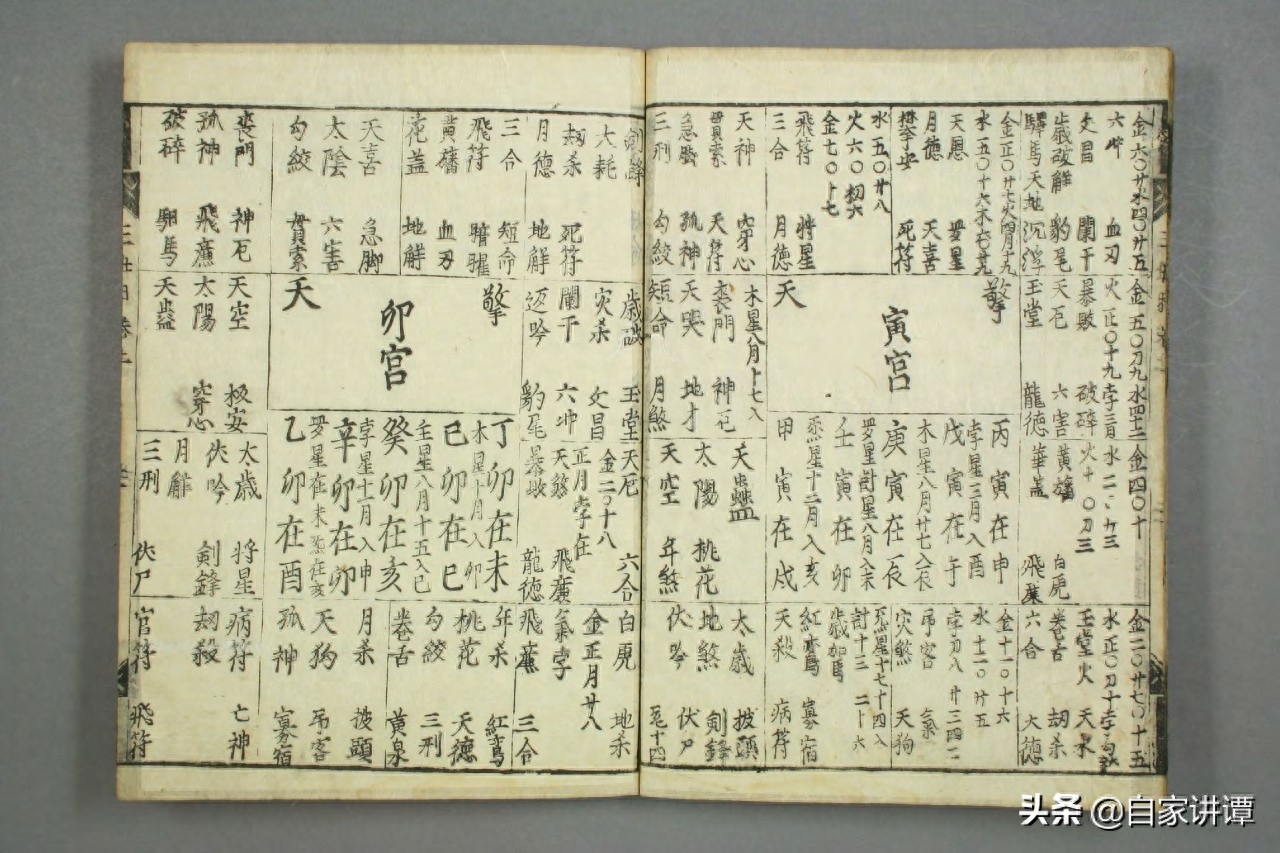 金六〇廿水四〇廿五
六冲 血刃
文昌 闌干
歲破解 豹尾
驛馬天地 沉浮
金正〇廿七火四月十九
水五〇十六木七〇廿九
天恩 羅星
月德 天喜
攀安 死符
水五〇廿八
火六〇初六
金七〇十七
飛符 將星
三合 月德
天神 穿心
貫索 天符
急脚 孤神
三刑 勾絞
金五〇刀九水四十二金四〇十
火正〇十九孛
暴敗 破碎
天厄 六害黃旛 白虎
玉堂 龍德華蓋 飛廉
擎
寅宮
天
木星八月十七入
喪門 神厄
天哭 地才
短命 月煞
丙寅在申
孛星三月入酉
戊寅在午
木星八月廿七入辰
庚寅在辰
羅星計星八月入未
壬寅在卯
炁星十二月入亥
甲寅在戌
天蠱
太陽 桃花
天空 年煞
金二〇廿七〇十五
水正〇刀十孛
玉堂火 天水
卷舌 劫杀
六合 大德
金十一〇十六
水十一〇廿五
孛刀入廿三四二
吊客 炁
災煞 天狗
炁星十七十四入
計十三二十六
歲加馬
紅鸞 寡宿
天殺 病符
太歲 披頭
地煞 劍鋒
伏吟 伏尸
劍鋒
大耗
劫杀 死符
月德 地解
三合 短命
飛符 暗曜
黃旛 血刃
花蓋 地解
天喜 急脚
太陰 六害
勾絞 貫索
喪門 神厄
孤神 飛廉
破碎 馹馬
歲破 玉堂
災杀 文昌
闌干 六冲
返吟 豹尾
擎
卯宮
天
天空 板安
太陽 穿心
天蠱
天厄 六合
金二〇十八
正月孛在
天煞 飛廉
暴敗 龍德
丁卯在未
木星十月入卯
己卯在巳
土星八月十五入巳
癸卯在亥
孛星十一月入申
辛卯在卯
羅星在未炁在亥
乙卯在酉
太歲 將星
伏吟 劍鋒
月解
三刑 伏尸
白虎 地杀
金正月廿八
炁孛
飛廉 三合
年杀 紅鸞
桃花 天德
勾絞 三刑
卷舌 黃泉
月杀 披頭
天狗 吊客
孤神 寡宿
病符 亡神
劫殺
官符 飛符
头条 @自家讲谭